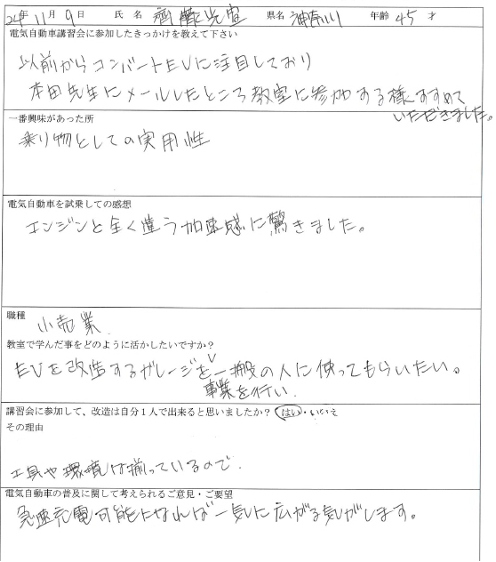 24年 11月 9日 氏名 齋藤光宣 県名 神奈川 年齢 45 才
電気自動車講習会に参加したきっかけを教えて下さい
以前からコンバートEVに注目しており
本田先生にメールしたところ教室に参加する様すすめて
いただきました。
一番興味があった所
乗り物としての実用性
電気自動車を試乗しての感想
エンジンと全く違う加速感に驚きました。
職種
小売業
教室で学んだ事をどのように活かしたいですか?
EVを改造するガレージを一般の人に使ってもらいたい。
事業を行い.
講習会に参加して、改造は自分1人で出来ると思いましたか? はい・いいえ
その理由
工具や環境は揃っているので.
電気自動車の普及に関して考えられるご意見・ご要望
急速充電可能になれば一気に広がる気がします。